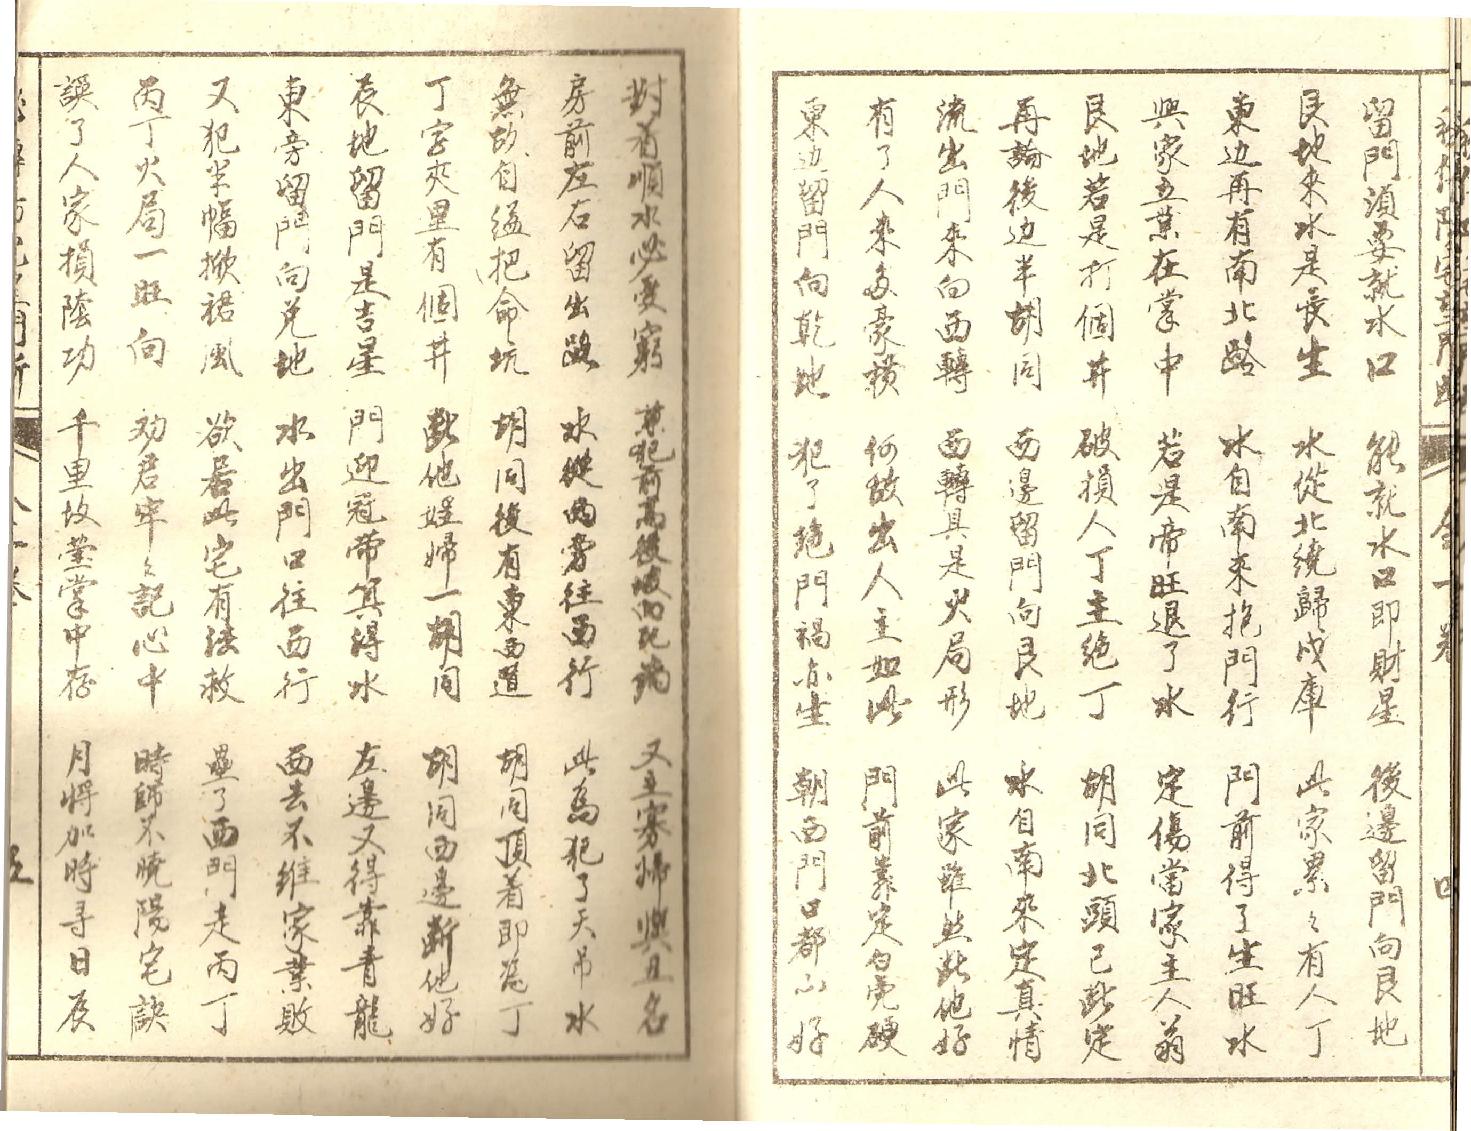 留門須要就水口　能就水口即財星　後邊留門向艮地
艮地來水是長生　水從北繞歸戌庫　此家累〻有人丁
東边再有南北路　水自南來抱門行　門前得了生旺水
興家立業在掌中　若是帝旺退了水　定傷當家主人翁
艮地若是打個井　破損人丁主绝丁　胡同北頭已斷定
再論後边半胡同　西邊留門向艮地　水自南來定真情
流出門來向西轉　西轉具是火局形　此家雖然斷他好
有了人來多豪横　何故出人主如此　門前靠定白虎硬
東边留門向乾地　犯了绝門禍亦生　朝西門口都不好
四
對着順水必受窮　又主寡婦興且名
房前左右留出路　水從兩旁往西行　此為犯了天吊水
無故自縊把命坑　胡同後有東西道　胡同頂着即為丁
丁字夾里有個井　斷他婬婦一胡同　胡同西邊斷他好
辰地留門是吉星　門迎冠帶算得水　左邊又得靠青龍
東旁留門向兑地　水出門口往西行　西去不維家業敗
又犯半幅掀裙風　欲居此宅有法救　壘了西門走丙丁
丙丁火局一旺向　劝君牢〻記心中　時師不曉陽宅訣
誤了人家損陰功　千里坟塋掌中存　月將加時寻日辰
五